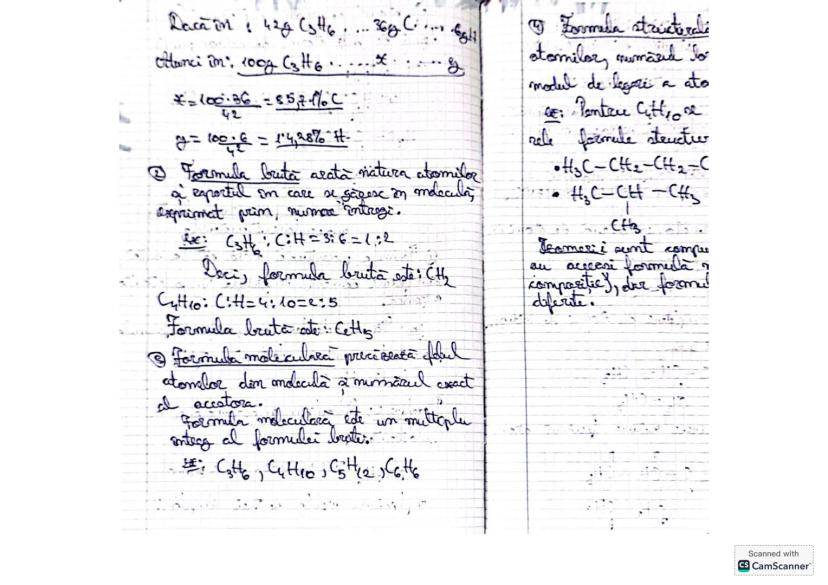 Dacă în : 42g C3H6 .... 36g C .... 6gH
Atunci în: 100g C3H6 ...... x ...... y
x = 100·36/42 = 85,71% C
y = 100·6/42 = 14,28% H
② Formula brută arată natura atomilor
și raportul în care se găsesc în moleculă,
exprimat prin numere întregi.
Ex: C3H6 ; C:H = 3:6 = 1:2
Deci, formula brută este: CH2
C4H10: C:H = 4:10 = 2:5
Formula brută este: C2H5
③ Formula moleculară precizează felul
atomilor din moleculă și numărul exact
al acestora.
Formula moleculară este un multiplu
întreg al formulei brute.
Ex: C3H6, C4H10, C5H12, C6H6
④ Formula structurală
atomilor, numărul lo
modul de legare a ato
Ex: Pentru C4H10 se
rele formule structur
• H3C – CH2 – CH2 – C
• H3C – CH – CH3
|
CH3
Izomerii sunt compu
au aceeași formulă m
compoziție), dar formu
diferite.
Scanned with
CS CamScanner